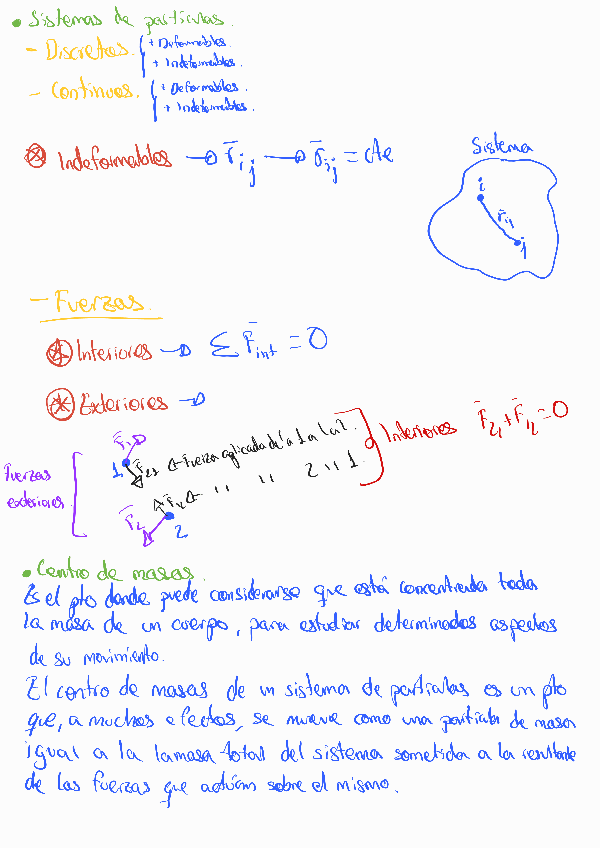 • Sistemas de partículas.
- Discretos. + Deformables.
+ Indeformables.
- Continuos. + Deformables.
+ Indeformables.
Indeformables → r̄ij → r̄ij = cte
Sistema
i
r̄ij
j
- Fuerzas.
* Interiores → Σ F̄int = 0
* Exteriores →
Fuerzas exteriores
F̄1
1 F̄21 ← Fuerza aplicada de la 1 a la 2.
F̄12 ← " " 2 " 1.
F̄2
2
Interiores F̄21 + F̄12 = 0
• Centro de masas.
Es el pto donde puede considerarse que está concentrada toda
la masa de un cuerpo, para estudiar determinados aspectos
de su movimiento.
El centro de masas de un sistema de partículas es un pto
que, a muchos efectos, se mueve como una partícula de masa
igual a la la masa total del sistema sometida a la resultante
de las fuerzas que actúan sobre el mismo.